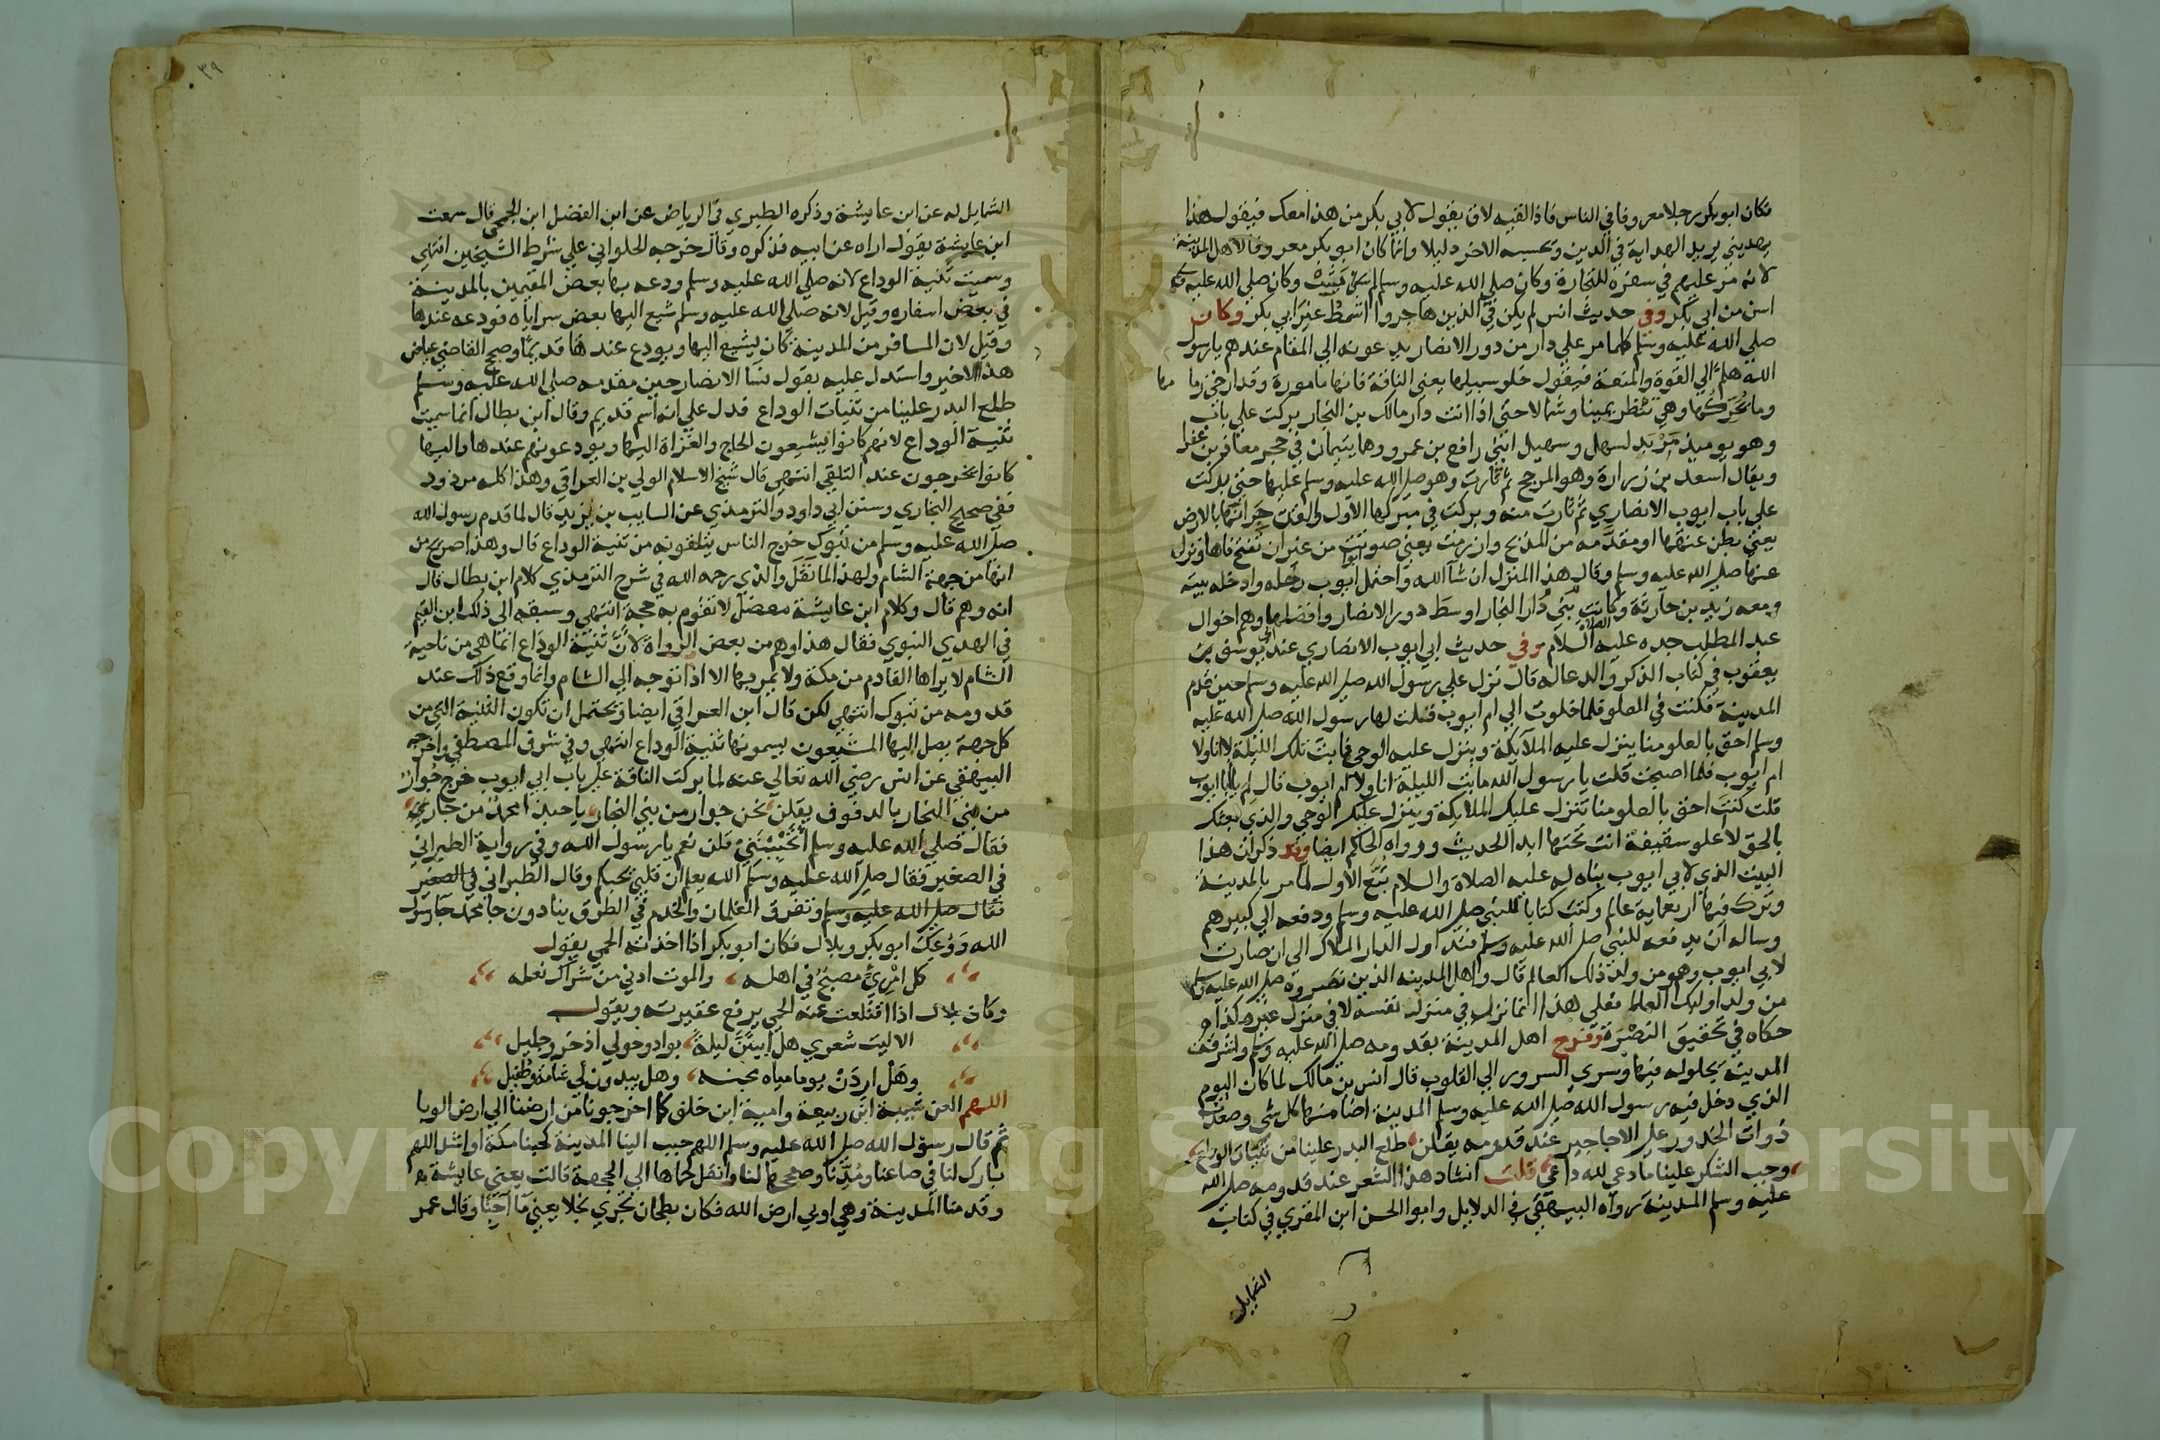 فكان ابو بكر رجلا معروفا في الناس فاذا لقيه لاق يقول لابي بكر من هذا معك فيقول هذا
يهديني يريد الهداية في الدين ويحسبه الاخر دليلا وانما كان ابو بكر معروفا لاهل المدينة
لانه مر عليهم في سفره للتجارة وكان صلي الله عليه وسلم لم يشب وكان صلي الله عليه وسلم
اسن من ابي بكر وفي حديث انس لم يكن في الذين هاجروا اشمط غير ابي بكر وكان
صلي الله عليه وسلم كلما مر علي دار من دور الانصار يدعونه الي المقام عندهم يا رسول
الله هلم الي القوة والمنعة فيقول خلو سبيلها يعني الناقة فانها مامورة وقد ارخي زمامها
وما يحركها وهي تنظر يمينا وشمالا حتي اذا اتت دار مالك بن النجار بركت علي باب
وهو يوميذ مربد لسهل وسهيل ابني رافع بن عمرو وهما يتيمان في حجر معاذ بن عفرا
ويقال اسعد بن زرارة وهو المرجح ثم ثارت وهو صلي الله عليه وسلم عليها حتي بركت
علي باب ابي ايوب الانصاري ثم ثارت منه وبركت في مبركها الاول والقت جرانها بالارض
يعني بطن عنقها او مقدمه من المذبح وارزمت يعني صوتت من غير ان تفتح فاها ونزل
عنها صلي الله عليه وسلم وقال هذا المنزل ان شا الله واحتمل ابو ايوب رحله وادخله بيته
ومعه زيد بن حارثة وكانت دار بني النجار اوسط دور الانصار وافضلها وهم اخوال
عبد المطلب جده عليه الصلاة والسلام وفي حديث ابي ايوب الانصاري عند ابي يوسف بن
يعقوب في كتاب الذكر والدعا له قال نزل علي رسول الله صلي الله عليه وسلم حين قدم
المدينة فكنت في العلو فلما خلوت الي ام ايوب قلت لها رسول الله صلي الله عليه
وسلم احق بالعلو منا ينزل عليه الملايكة وينزل عليه الوحي فما بت تلك الليلة لا انا ولا
ام ايوب فلما اصبحت قلت يا رسول الله ما بت الليلة انا ولا ام ايوب قال لم يا ابا ايوب
قلت كنت احق بالعلو منا تنزل عليك الملايكة وينزل عليك الوحي والذي بعثك
بالحق لا اعلو سقيفة انت تحتها ابدا الحديث ورواه الحاكم ايضا وقد ذكر ان هذا
البيت الذي لابي ايوب بناه له عليه الصلاة والسلام تبع الاول لما مر بالمدينة
وترك فيها اربعماية عالم وكتب كتابا للنبي صلي الله عليه وسلم ودفعه الي كبيرهم
وساله ان يدفعه للنبي صلي الله عليه وسلم فتداول الدار الملاك الي ان صارت
لابي ايوب وهو من ولد ذلك العالم قال واهل المدينه الذين نصروه صلي الله عليه وسلم
من ولد اوليك العلما فعلي هذا انما نزل في منزل نفسه لا في منزل غيره كذا
حكاه في تحقيق النصرة وفرح اهل المدينة بقدومه صلي الله عليه وسلم واشرقت
المدينة بحلوله فيها وسري السرور الي القلوب قال انس بن مالك لما كان اليوم
الذي دخل فيه رسول الله صلي الله عليه وسلم المدينة اضا منها كل شي وصعدت
ذوات الخدور علي الاجاجير عند قدومه يقلن طلع البدر علينا من ثنيات الوداع
وجب الشكر علينا ما دعي لله داعي قلت انشاد هذا الشعر عند قدومه صلي الله
عليه وسلم المدينة رواه البيهقي في الدلايل وابو الحسن ابن المقري في كتاب
الشمايل
٣٩
الشمايل له عن ابن عايشة وذكره الطبري في الرياض عن ابن الفضل ابن الجمحي قال سمعت
ابن عايشة يقول اراه عن ابيه فذكره وقال خرجه الحلواني علي شرط الشيخين انتهي
وسميت ثنية الوداع لانه صلي الله عليه وسلم ودعه بها بعض المقيمين بالمدينة
في بعض اسفاره وقيل لانه صلي الله عليه وسلم شيع اليها بعض سراياه فودعه عندها
وقيل لان المسافر من المدينة كان يشيع اليها ويودع عندها قديما وصحح القاضي عياض
هذا الاخير واستدل عليه بقول نسا الانصار حين مقدمه صلي الله عليه وسلم
طلع البدر علينا من ثنيات الوداع فدل علي انه اسم قديم وقال ابن بطال انما سميت
ثنية الوداع لانهم كانوا يشيعون الحاج والغزاة اليها ويودعونهم عندها واليها
كانوا يخرجون عند التلقي انتهي قال شيخ الاسلام الولي بن العراقي وهذا كله مردود
ففي صحيح البخاري وسنن ابي داود والترمذي عن السايب بن يزيد قال لما قدم رسول الله
صلي الله عليه وسلم من تبوك خرج الناس يتلقونه من ثنية الوداع قال وهذا صريح من
انها من جهة الشام ولهذا لما نقل والذي رحمه الله في شرح الترمذي كلام ابن بطال قال
انه وهم قال وكلام ابن عايشة معضل لا تقوم به حجة انتهي وسبقه الي ذلك ابن القيم
في الهدي النبوي فقال هذا وهم من بعض الرواة لان ثنية الوداع انما هي من ناحية
الشام لا يراها القادم من مكة ولا يمر بها الا اذا توجه الي الشام وانما وقع ذلك عند
قدومه من تبوك انتهي لكن قال ابن العراقي ايضا ويحتمل ان تكون الثنية التي من
كل جهة يصل اليها المشيعون يسمونها ثنية الوداع انتهي وفي شرف المصطفي واخرجه
البيهقي عن انس رضي الله تعالي عنه لما بركت الناقة علي باب ابي ايوب خرج جوار
من بني النجار بالدفوف يقلن نحن جوار من بني النجار يا حبذا محمد من جار
فقال صلي الله عليه وسلم اتحببنني قلن نعم يا رسول الله وفي رواية الطبراني
في الصغير فقال صلي الله عليه وسلم الله يعلم ان قلبي يحبكم وقال الطبراني في الصغير
فقال صلي الله عليه وسلم وتفرق الغلمان والخدم في الطرق ينادون جا محمد جا رسول
الله ووعك ابو بكر وبلال فكان ابو بكر اذا اخذته الحمي يقول
كل امرئ مصبح في اهله والموت ادني من شراك نعله
وكان بلال اذا اقلعت عنه الحمي يرفع عقيرته ويقول
الا ليت شعري هل ابيتن ليلة بواد وحولي اذخر وجليل
وهل اردن يوما مياه مجنه وهل يبدون لي شامة وطفيل
اللهم العن شيبة ابن ربيعة وامية ابن خلف كما اخرجونا من ارضنا الي ارض الوبا
ثم قال رسول الله صلي الله عليه وسلم اللهم حبب الينا المدينة كحبنا مكة او اشد اللهم
بارك لنا في صاعنا ومدنا وصححها لنا وانقل حماها الي الجحفة قالت يعني عايشة
وقدمنا المدينة وهي اوبي ارض الله فكان بطحان تجري نجلا يعني ما اجنا وقال عمر
Copyright © King Saud University